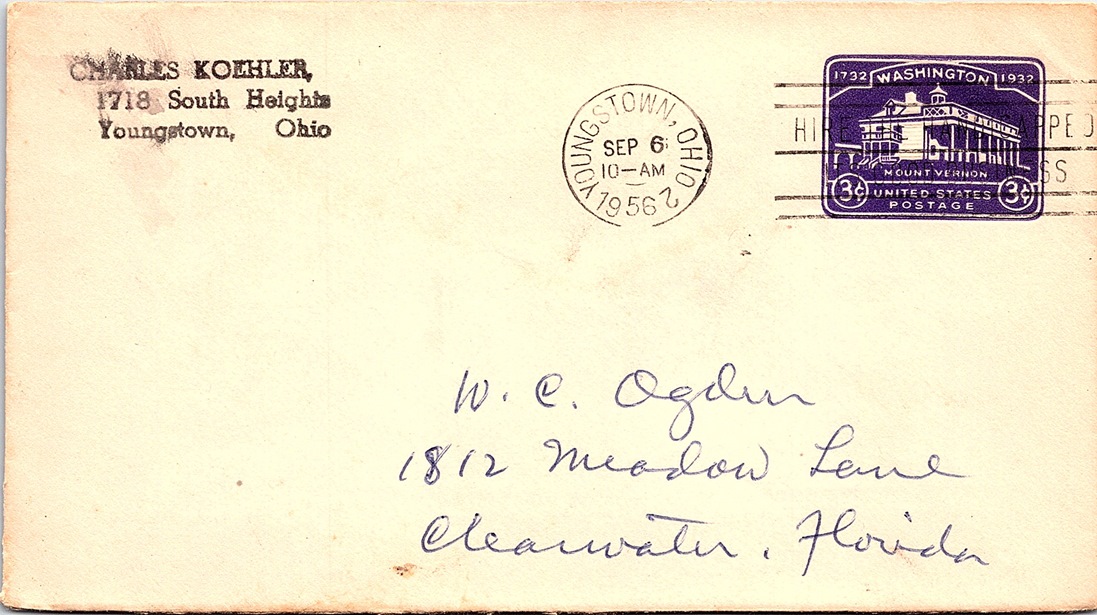 CHARLES KOEHLER,
1718 South Heights
Youngstown, Ohio
YOUNGSTOWN, OHIO 2
SEP 6
10-AM
1956
1732 WASHINGTON 1932
MOUNT VERNON
3¢ UNITED STATES 3¢
POSTAGE
HIRE THE HANDICAPPED
GOOD BUSINESS
W. C. Ogden
1812 Meadow Lane
Clearwater, Florida